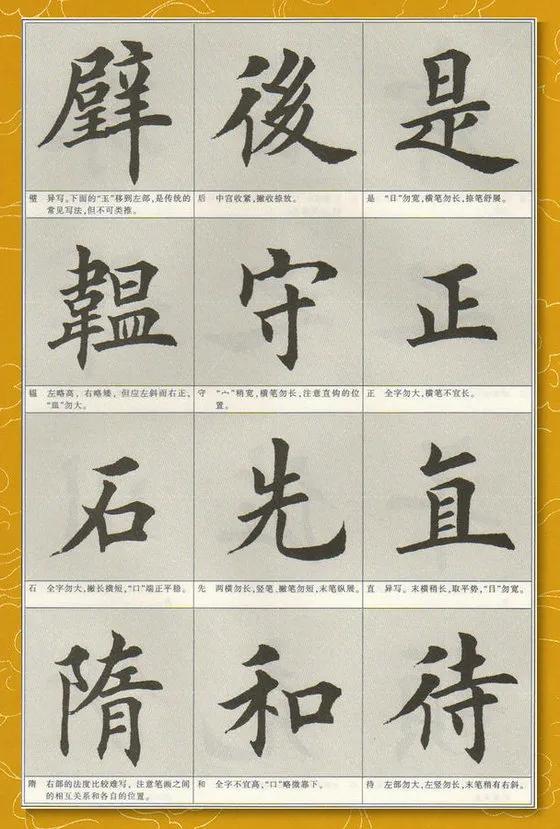 璧
璧 异写。下面的“玉”移到左部,是传统的
常见写法,但不可类推。
後
后 中宫收紧,撇收捺放。
是
是 “日”勿宽,横笔勿长,捺笔舒展。
韞
韫 左略高,右略矮,但应左斜而右正,
“皿”勿大。
守
守 “宀”稍宽,横笔勿长,注意直钩的位
置。
正
正 全字勿大,横笔不宜长。
石
石 全字勿大,撇长横短,“口”端正平稳。
先
先 两横勿长,竖笔、撇笔勿短,末笔纵展。
直
直 异写。末横稍长,取平势,“目”勿宽。
隋
隋 右部的法度比较难写,注意笔画之间
的相互关系和各自的位置。
和
和 全字不宜高,“口”略微靠下。
待
待 左部勿大,左竖勿长,末笔稍有右斜。